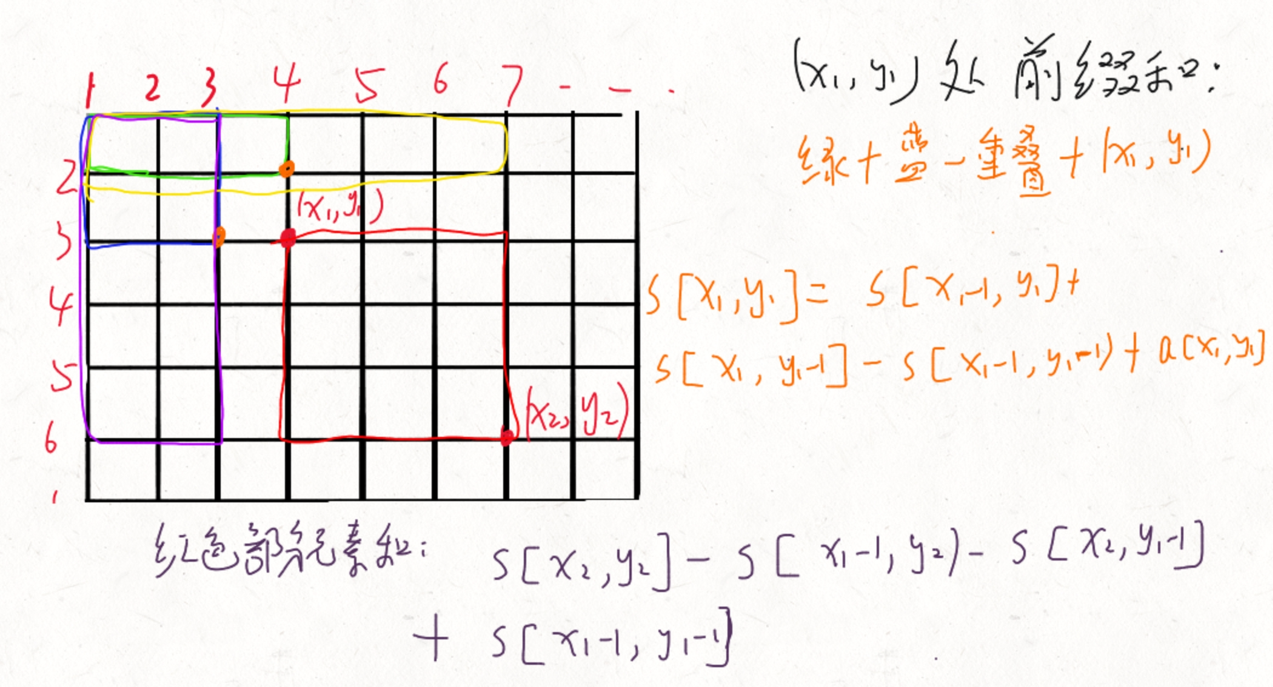 1 2 3 4 5 6 7 - - .
2
3
4
5
6
(x₁, y₁)
(x₂, y₂)
(x₁, y₁) 处 前缀和:
绿+蓝-重叠+(x₁, y₁)
S[x₁,y₁]= S[x₁-1, y₁]+
S[x₁, y₁-1]-S[x₁-1, y₁-1)+a(x₁,y₁]
红色部分元素和: S[x₂,y₂]-S[x₁-1,y₂)-S[x₂,y₁-1]
+ S[x₁-1, y₁-1]